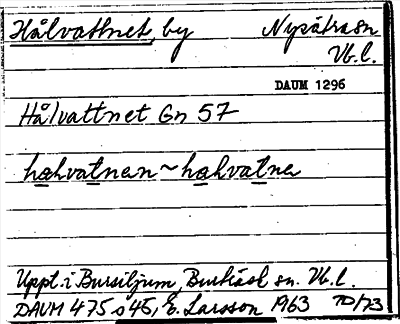 Hålvattnet, by Nysätra sn
Vb.l.
DAUM 1296
Hålvattnet Gn 57
halvatnan ~ halvatna
Uppt. i Bursiljum, Burträsk sn. Vb.l.
DAUM 475 s 45, E. Larsson 1963 TD/73